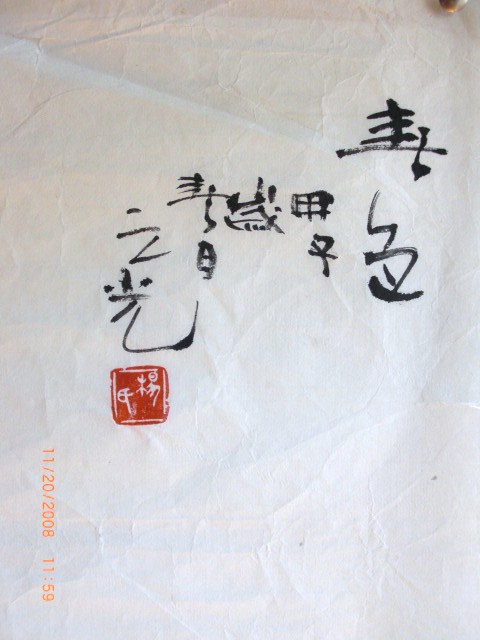 春色
甲子
歲
春日
之光
楊氏
11/20/2008 11:59